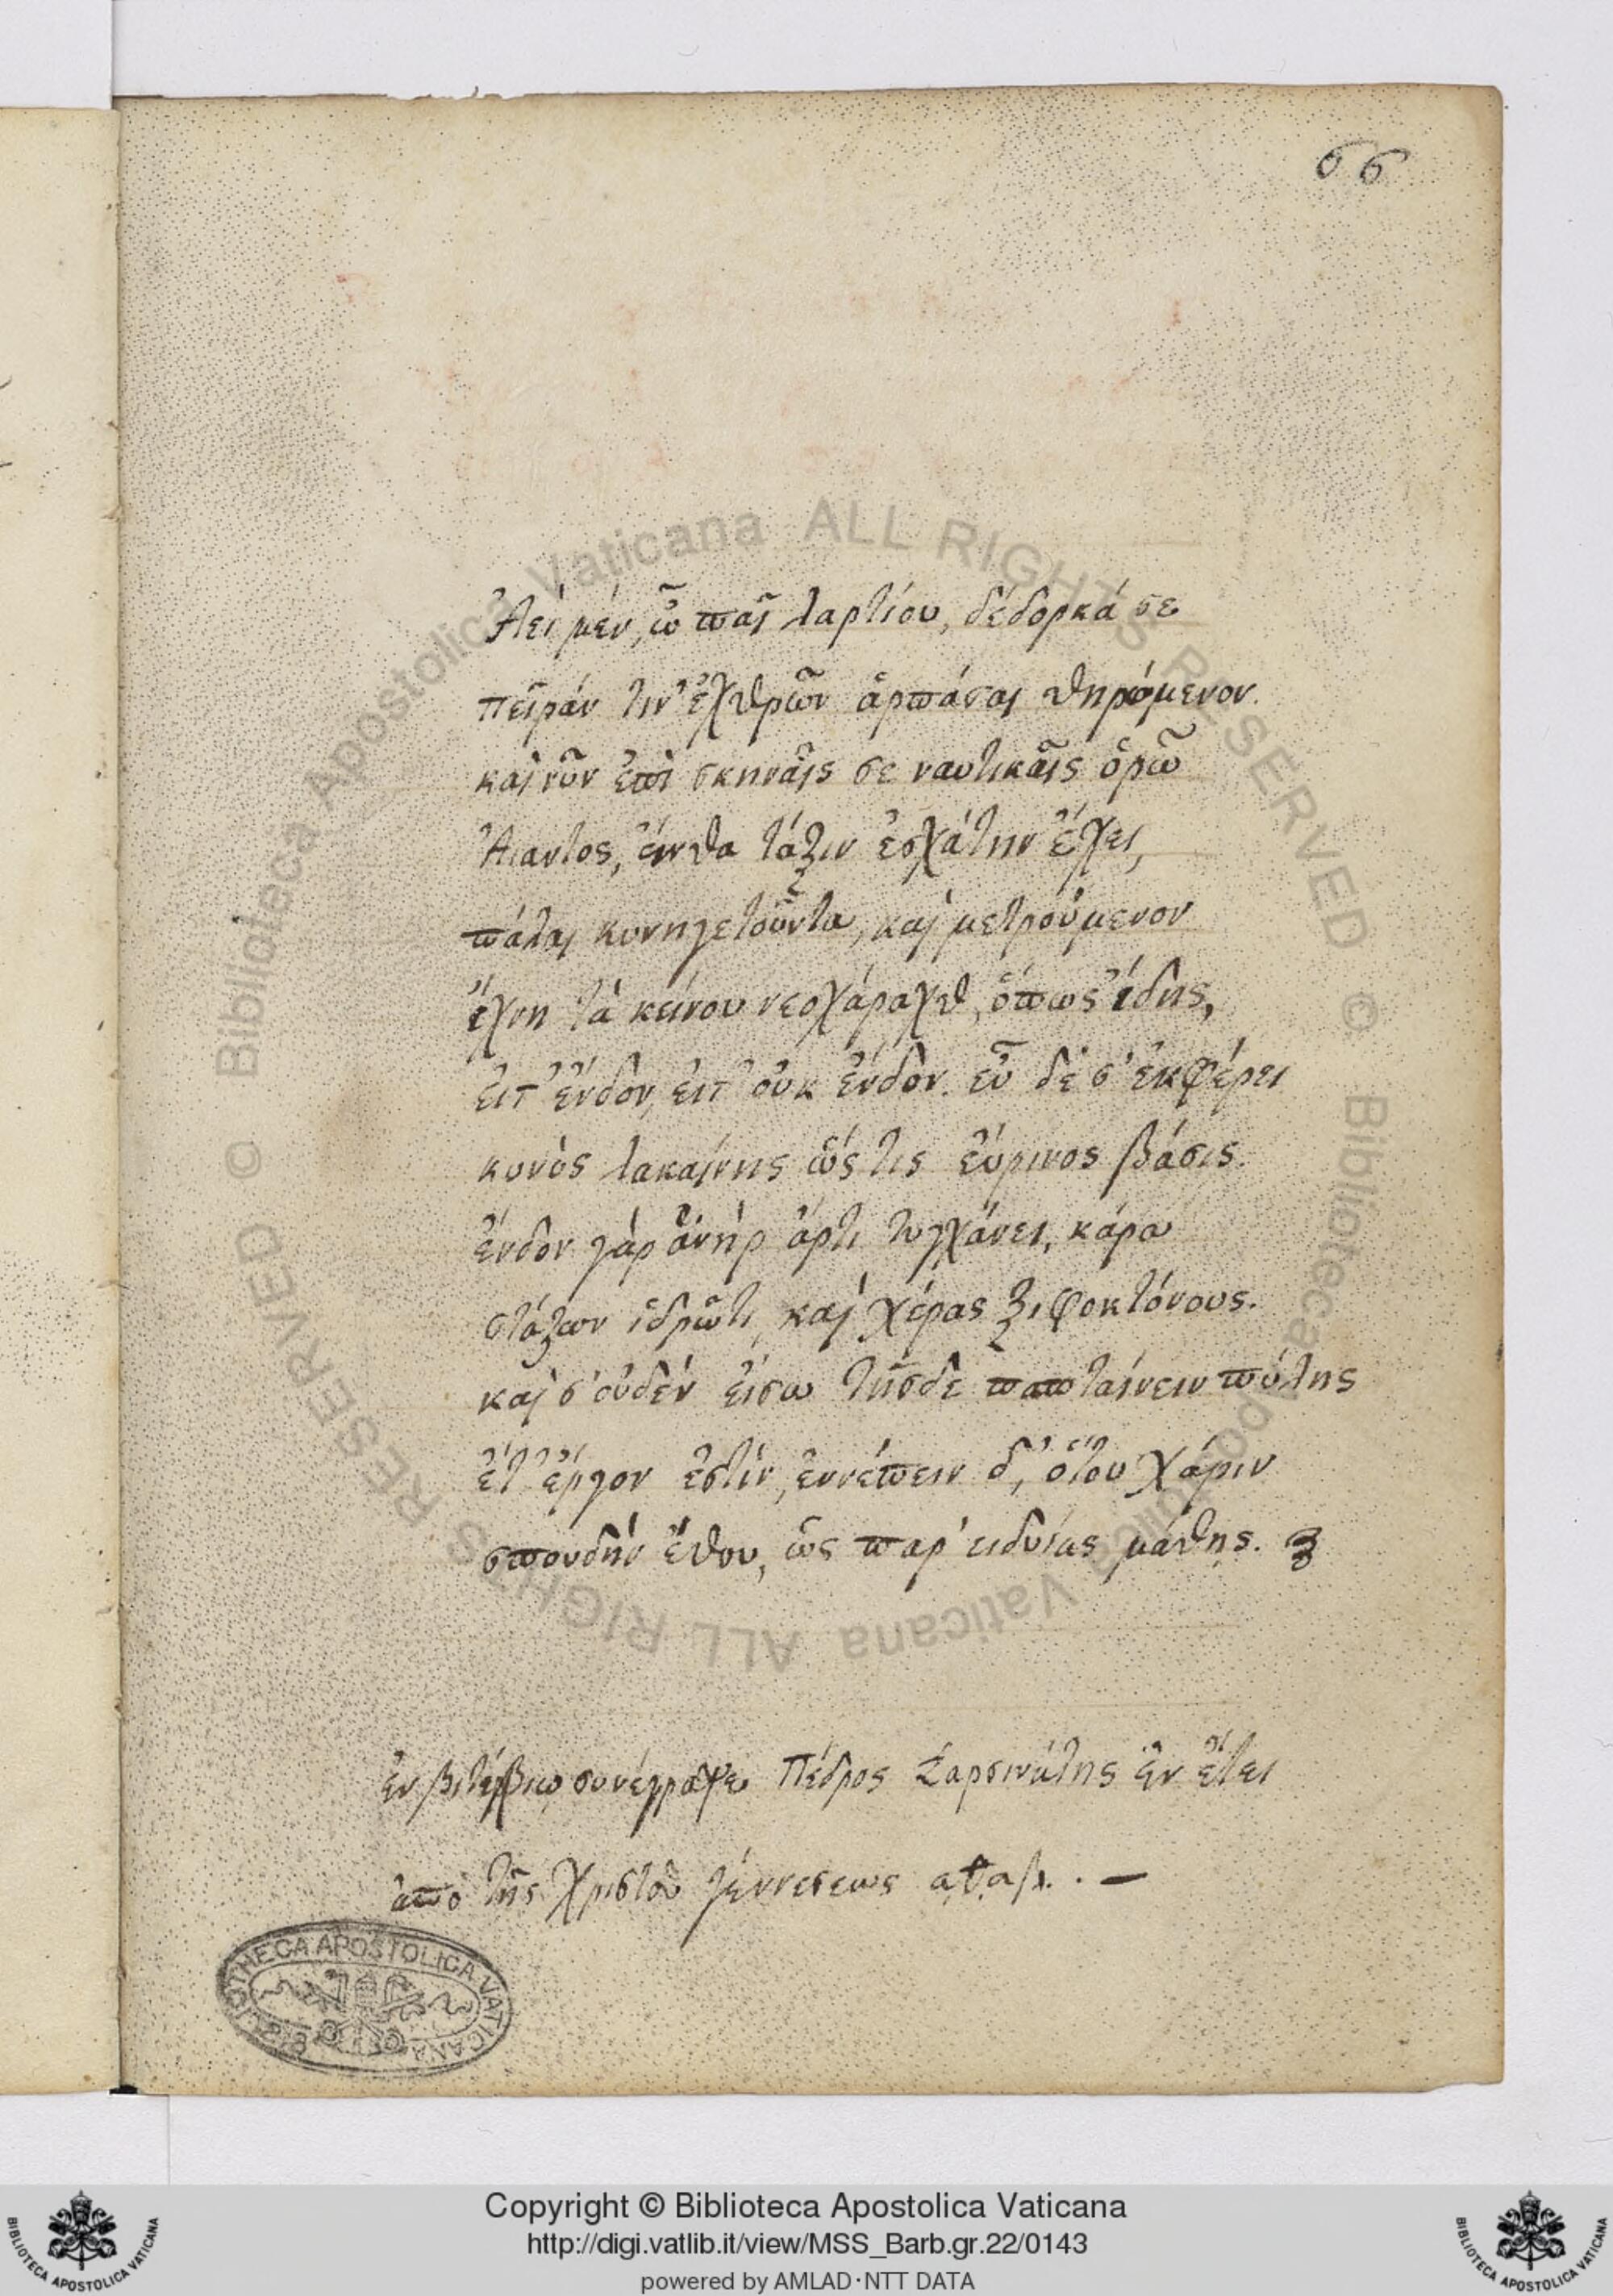 66
Ἀεὶ μὲν, ὦ παῖ λαρτίου, δέδορκά σε
πεῖράν τιν' ἐχθρῶν ἁρπάσαι θηρώμενον.
καὶ νῦν ἐπὶ σκηναῖς σε ναυτικαῖς ὁρῶ
Ἄιαντος, ἔνθα τάξιν ἐσχάτην ἔχει,
πάλαι κυνηγετοῦντα, καὶ μετρούμενον
ἴχνη τὰ κείνου νεοχάραχθ', ὅπως ἴδης,
εἰτ' ἔνδον, εἰτ' οὐκ ἔνδον. εὖ δέ σ' ἐκφέρει
κυνὸς λακαίνης ὥς τις εὔρινος βάσις.
ἔνδον γὰρ ἁνὴρ ἄρτι τυγχάνει, κάρα
στάζων ἱδρῶτι, καὶ χέρας ξιφοκτόνους.
καί σ' οὐδὲν εἴσω τῆσδε παπταίνειν πύλης
ἔτ' ἔργον ἐστίν, ἐννέπειν δ', ὅτου χάριν
σπουδὴν ἔθου, ὡς παρ' ειδυίας μάθης.
ἐν βιτέρβιῳ συνέγραψε Πέδρος Σαρσινάτης ἐν ἔτει
ἀπὸ τῆς Χριστοῦ γέννεσεως
BIBLIOTHECA APOSTOLICA VATICANA
© Biblioteca Apostolica Vaticana ALL RIGHTS RESERVED
© Biblioteca Apostolica Vaticana ALL RIGHTS RESERVED
Copyright © Biblioteca Apostolica Vaticana
http://digi.vatlib.it/view/MSS_Barb.gr.22/0143
powered by AMLAD·NTT DATA
BIBLIOTECA APOSTOLICA VATICANA
BIBLIOTECA APOSTOLICA VATICANA